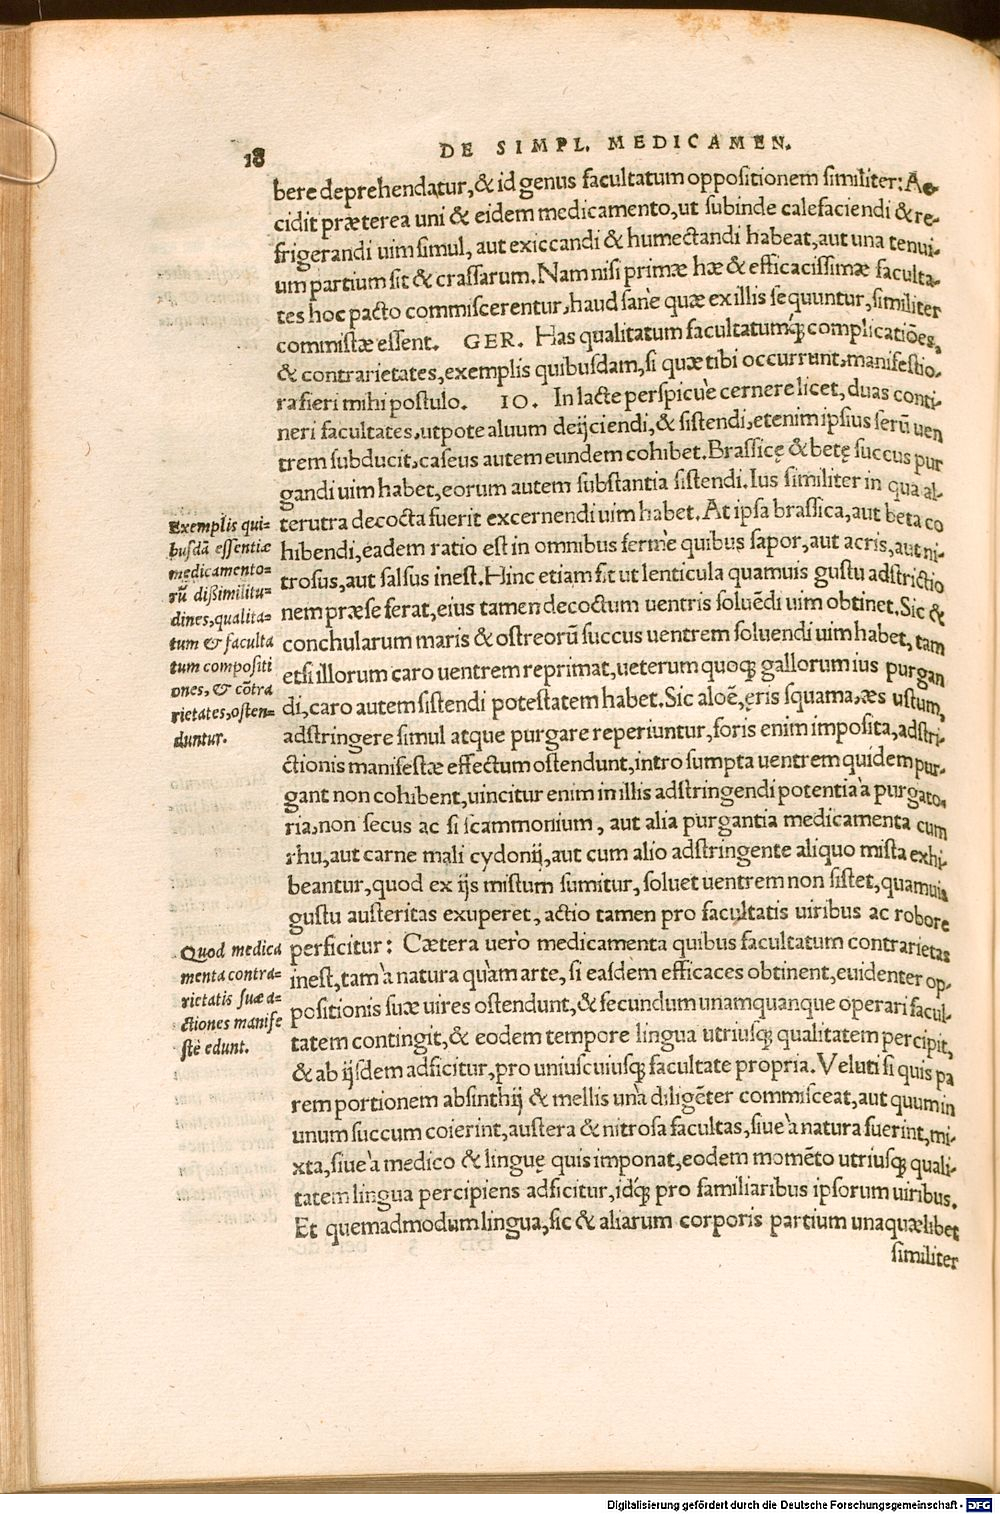 18
DE SIMPL. MEDICAMEN.
bere deprehendatur, & id genus facultatum oppositionem similiter: Ac-
cidit præterea uni & eidem medicamento, ut subinde calefaciendi & re-
frigerandi uim simul, aut exiccandi & humectandi habeat, aut una tenui-
um partium sit & crassarum. Nam nisi primæ hæ & efficacissimæ faculta-
tes hoc pacto commiscerentur, haud sanè quæ ex illis sequuntur, similiter
commistæ essent. GER. Has qualitatum facultatumq́; complicatiões,
& contrarietates, exemplis quibusdam, si quæ tibi occurrunt, manifestio-
ra fieri mihi postulo. IO. In lacte perspicuè cernere licet, duas conti-
neri facultates, utpote aluum deijciendi, & sistendi, etenim ipsius serũ uen
trem subducit, caseus autem eundem cohibet. Brassicę & betę succus pur
gandi uim habet, eorum autem substantia sistendi. Ius similiter in qua al-
terutra decocta fuerit excernendi uim habet. At ipsa brassica, aut beta co
hibendi, eadem ratio est in omnibus fermè quibus sapor, aut acris, aut ni-
trosus, aut salsus inest. Hinc etiam fit ut lenticula quamuis gustu adstrictio
nem præse ferat, eius tamen decoctum uentris soluẽdi uim obtinet. Sic &
conchularum maris & ostreorũ succus uentrem soluendi uim habet, tam
etsi illorum caro uentrem reprimat, ueterum quoq; gallorum ius purgan
di, caro autem sistendi potestatem habet. Sic aloẽ, ęris squama, æs ustum,
adstringere simul atque purgare reperiuntur, foris enim imposita, adstri-
ctionis manifestæ effectum ostendunt, intro sumpta uentrem quidem pur-
gant non cohibent, uincitur enim in illis adstringendi potentia à purgato-
ria, non secus ac si scammonium, aut alia purgantia medicamenta cum
rhu, aut carne mali cydonij, aut cum alio adstringente aliquo mista exhi-
beantur, quod ex ijs mistum sumitur, soluet uentrem non sistet, quamuis
gustu austeritas exuperet, actio tamen pro facultatis uiribus ac robore
perficitur: Cætera uerò medicamenta quibus facultatum contrarietas
inest, tam à natura quàm arte, si easdem efficaces obtinent, euidenter op-
positionis suæ uires ostendunt, & secundum unamquanque operari facul-
tatem contingit, & eodem tempore lingua utriusq; qualitatem percipit,
& ab ijsdem adficitur, pro uniuscuiusq; facultate propria. Veluti si quis pa
rem portionem absinthij & mellis unà diligẽter commisceat, aut quum in
unum succum coierint, austera & nitrosa facultas, siue à natura fuerint, mi-
xta, siue à medico & linguę quis imponat, eodem momẽto utriusq; quali-
tatem lingua percipiens adficitur, idq; pro familiaribus ipsorum uiribus.
Et quemadmodum lingua, sic & aliarum corporis partium unaquælibet
similiter
Exemplis qui-
busdã essentiæ
medicamento-
rũ dißimilitu-
dines, qualita-
tum & faculta
tum compositi
ones, & cõtra
rietates, osten-
duntur.
Quod medica
menta contra-
rietatis suæ a-
ctiones manife
stè edunt.
Digitalisierung gefördert durch die Deutsche Forschungsgemeinschaft - DFG